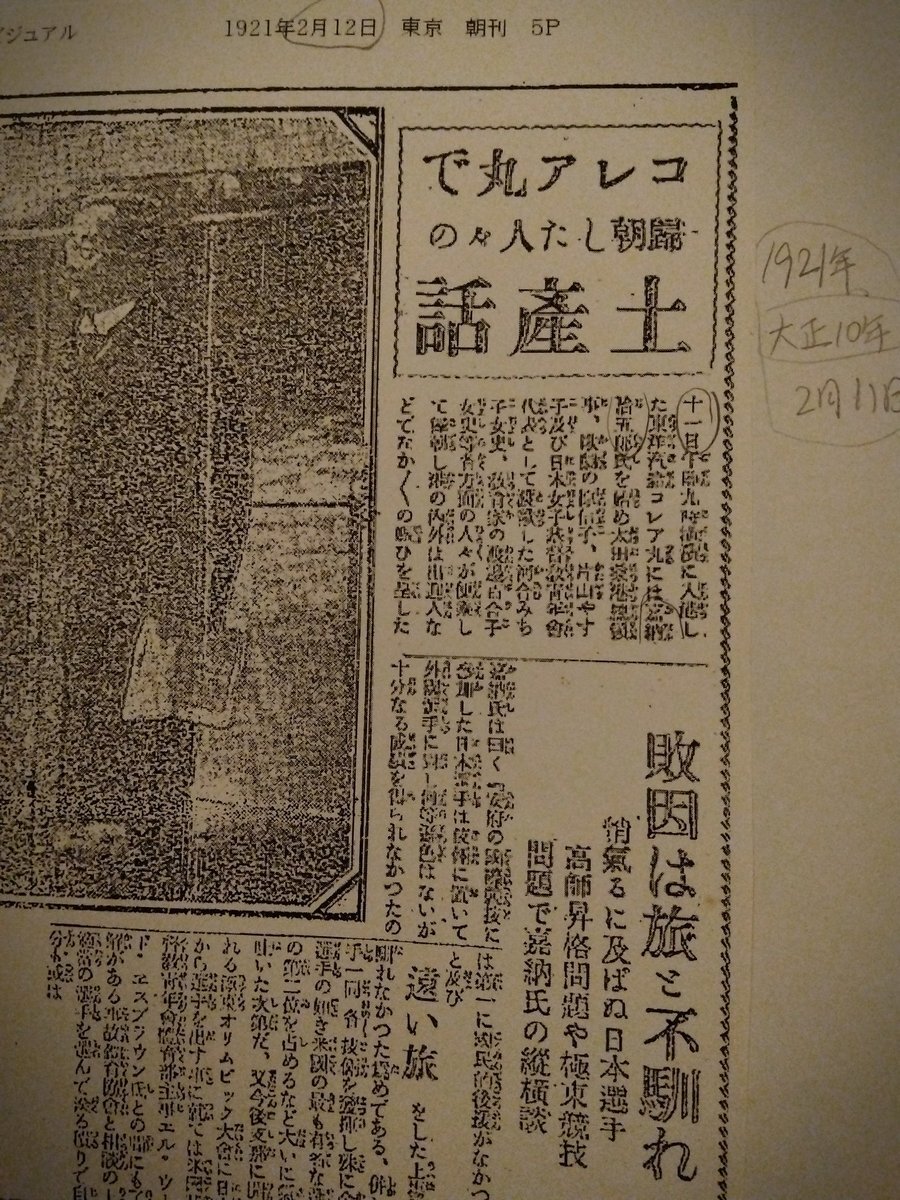 ジュアル
1921年2月12日 東京 朝刊 5P
コレア丸で
歸朝した人々の
土産話
1921年
大正10年
2月11日
十一日午前九時橫濱に入港し
た東洋汽船コレア丸には嘉納
治五郎氏を始め太田桑港總領
事、信子、片山やす
子及び日本女子基督敎靑年會
代表として渡米した河合みち
子女史、敎育家の渡邊百合子
女史等各方面の人々が便乘し
て歸朝し港の內外は出迎人な
どでなか〱の賑ひを呈した
敗因は旅と不馴れ
悄氣るに及ばぬ日本選手
高師昇格問題や極東競技
問題で嘉納氏の縱橫談
嘉納氏は曰く『安府の國際競技に
參加した日本選手は技倆に置いて
外國選手に對し何等遜色はないが
十分なる成績を得られなかつたの
は第一に國民的後援がなかつ
と及び
遠い旅をした上
馴れなかつた爲めである、併
手一同各技倆を發揮し殊に
選手の如き米國の最も有名な
の第二位を占めるなど大いに
吐いた次第だ、又今後支那に
れる極東オリムピック大會に日
から選手を出す事に就ては米國
敎靑年會體育部主事エル・ツ
ド・エスブラウン氏との間にも
解がある事故體育協會と相談の
適當の選手を選んで送る積りで
分も或は